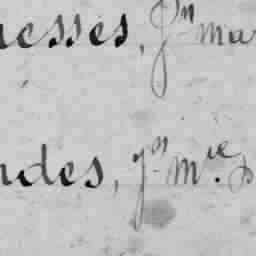 esses, Jn mar
ndes, Jn Mie